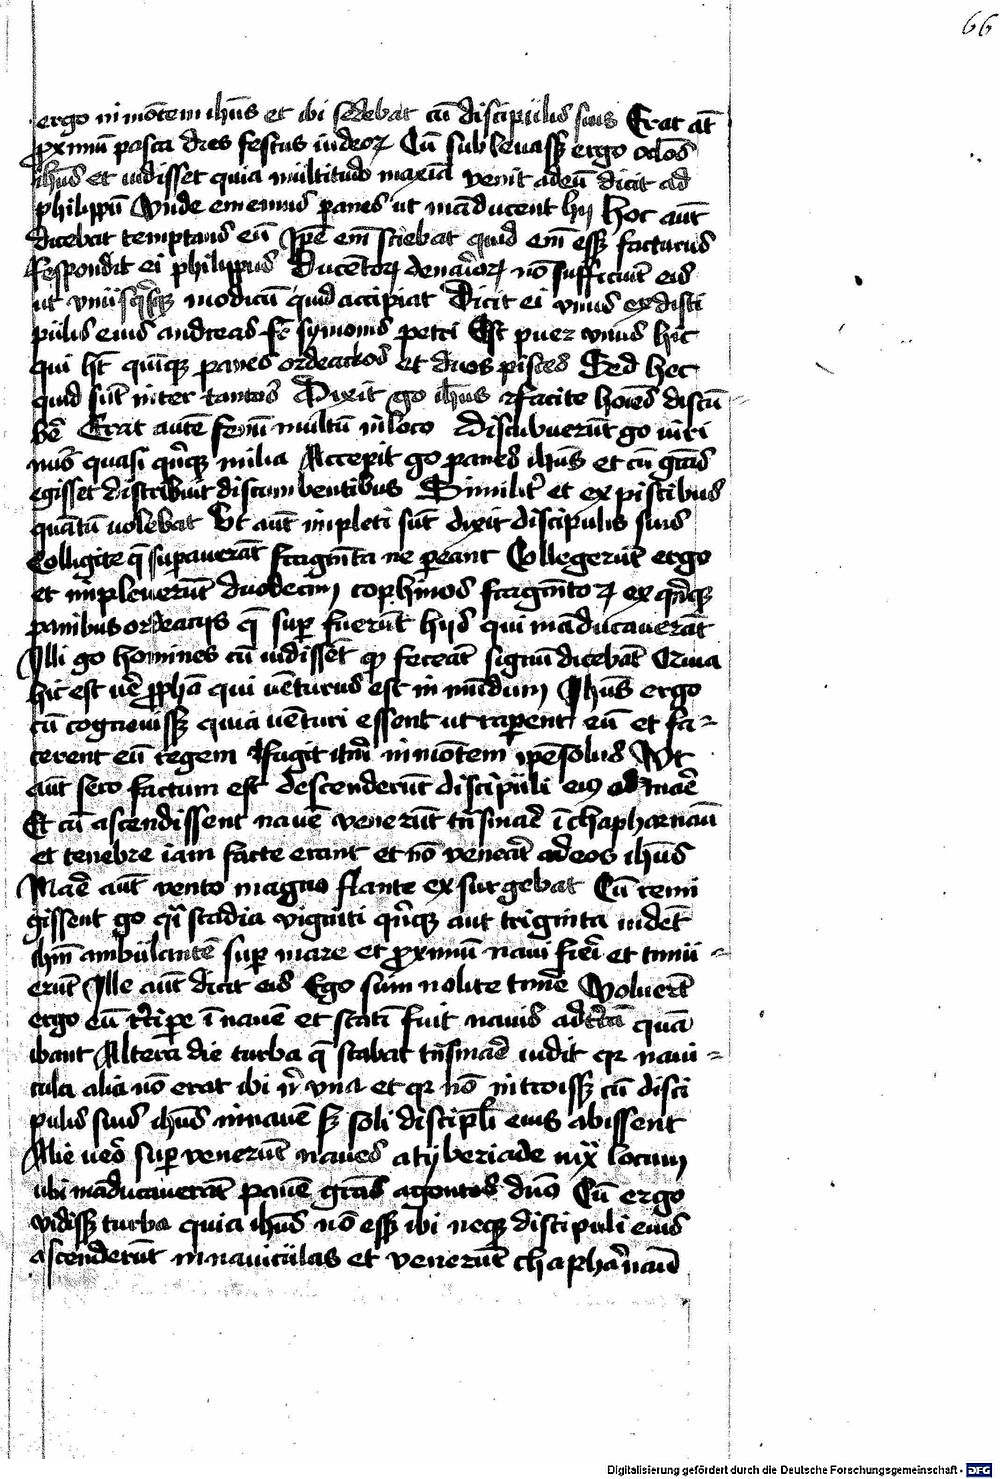 66
ergo in mōtem ihūs et ibi sedebat cū discipulis suis Erat āt
ꝓximū pasca dies festus iudeoꝝ Cū subleuassꝫ ergo oclōs
ihūs et uidisset quia multitudo maxiā venit ad eū dicit ad
philippū Vnde ememus panes ut māducent hij Hoc aūt
dicebat temptans eū Ip̄e em̄ sciebat quid em̄ essꝫ facturus
Respondit ei philippus Ducentoꝝ denarioꝝ nō sufficiūt eis
ut vnusqsqꝫ modicū quid accipiat Dicit ei vnus ex disci
pulis eius andreas fr̄ symonis petri Est puer vnus hic
qui ht̄ quinqꝫ panes ordeaceos et duos pisces Sed hec
quid sūt inter tantos Dixit go ihūs facite hoīes discū
bē Erat autē fenū multū in loco discubuerūt go uiri
nūo quasi qnqꝫ milia Accepit go panes ihūs et cū grās
egisset distribuit discumbentibus Similit̄ et ex piscibus
quātū uolebat Vt aūt impleti sūt dixit discipulis suis
Colligite q̄ supauerāt fragmēta ne peant Collegerūt ergo
et impleuerūt duodecim cophinos fragmētoꝝ ex qnqꝫ
panibus ordeacijs q̄ sup fuerūt hijs qui māducauerāt
Illi go homines cū uidissēt qꝫ feceāt signū dicebāt Quia
hic est ue᷑ ꝓphā qui uēturus est in mūdum Ihūs ergo
cū cognouissꝫ quia uēturi essent ut raperent eū et fa
cerent eū regem fugit itm̄ in mōtem ip̄e solus Vt
aūt sero factum est descenderūt discipuli eiꝰ ad mare
Et cū ascendissent nauē venerūt tn̄s mare ī chapharnaū
et tenebre iam facte erant et nō venerāt ad eos ihūs
Mare aūt vento magno flante exsurgebat Cū remi
gissent go q̄i stadia viginti qnqꝫ aut triginta uidēt
ihm̄ ambulantē sup mare et ꝓximū naui fieri et timu
erūt Ille aūt dicit eis Ego sum nolite time᷑ Voluerūt
ergo eū recipe ī nauē et statī fuit nauis ad terrā quā
ibant Altera die turba q̄ stabat tn̄s mare uidit qꝛ naui
cula alia nō erat ibi n̄ vna et qꝛ nō introissꝫ cū disci
pulis suis ihūs in nauē sꝫ soli discipli eius abissent
Alie uero sup venerūt naues a tyberiade iuxͣ locum
ubi māducauerāt panē grās agentes dn̄o Cū ergo
vidissꝫ turba quia ihūs nō essꝫ ibi neqꝫ discipuli eius
ascenderūt in nauiculas et venerūt chapharnaū
Digitalisierung gefördert durch die Deutsche Forschungsgemeinschaft - DFG